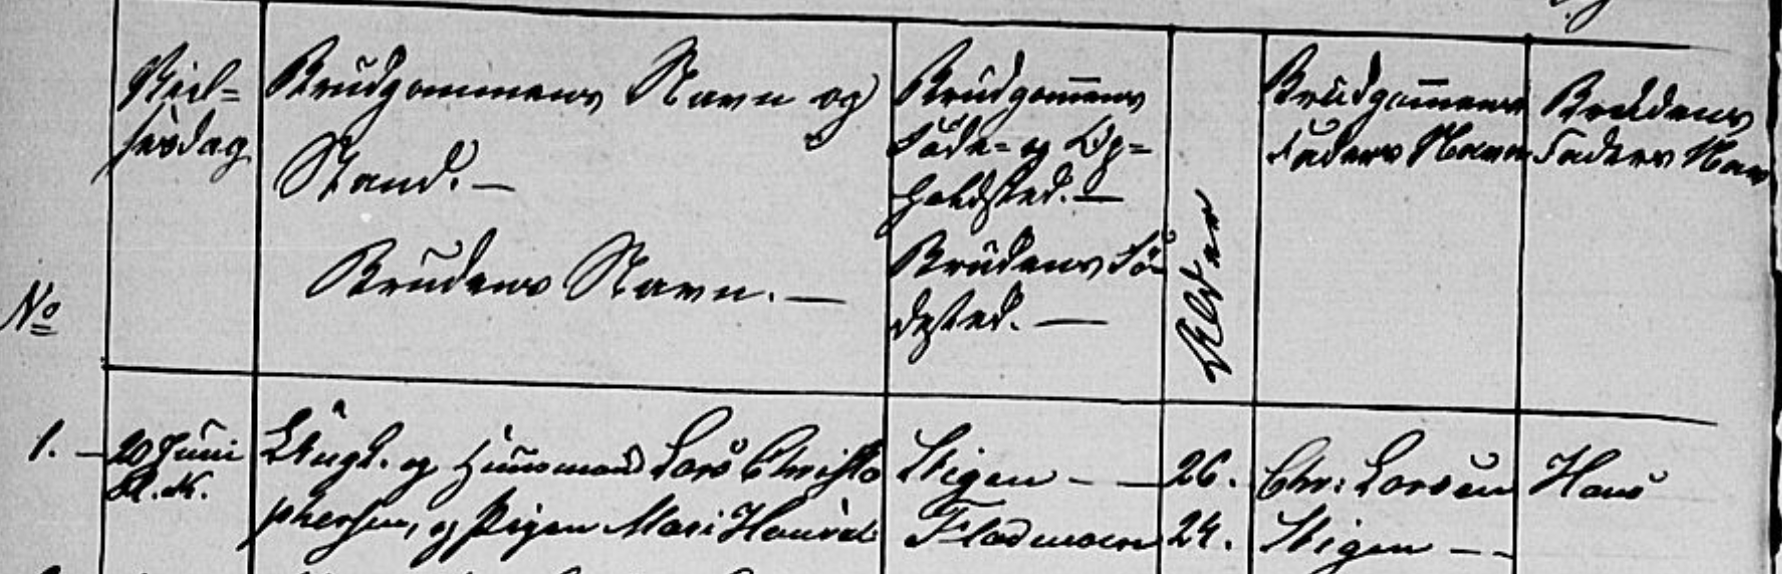 No
Viel-
sesdag
Brudgommens Navn og
Stand. —
Brudens Navn. —
Brudgom̅ens
Føde- og Op-
holdsted. —
Brudens Fø-
dested. —
Alder
Brudgom̅ens
Faders Navn
Brudens
Faders Navn
1. — 20 Juni
Ungk. og Huusmand Lars Christo
phersen, og Pigen Mari Hansd
Stigen — —
Fladmoen
26.
24.
Chr: Larsen
Stigen — —
Hans